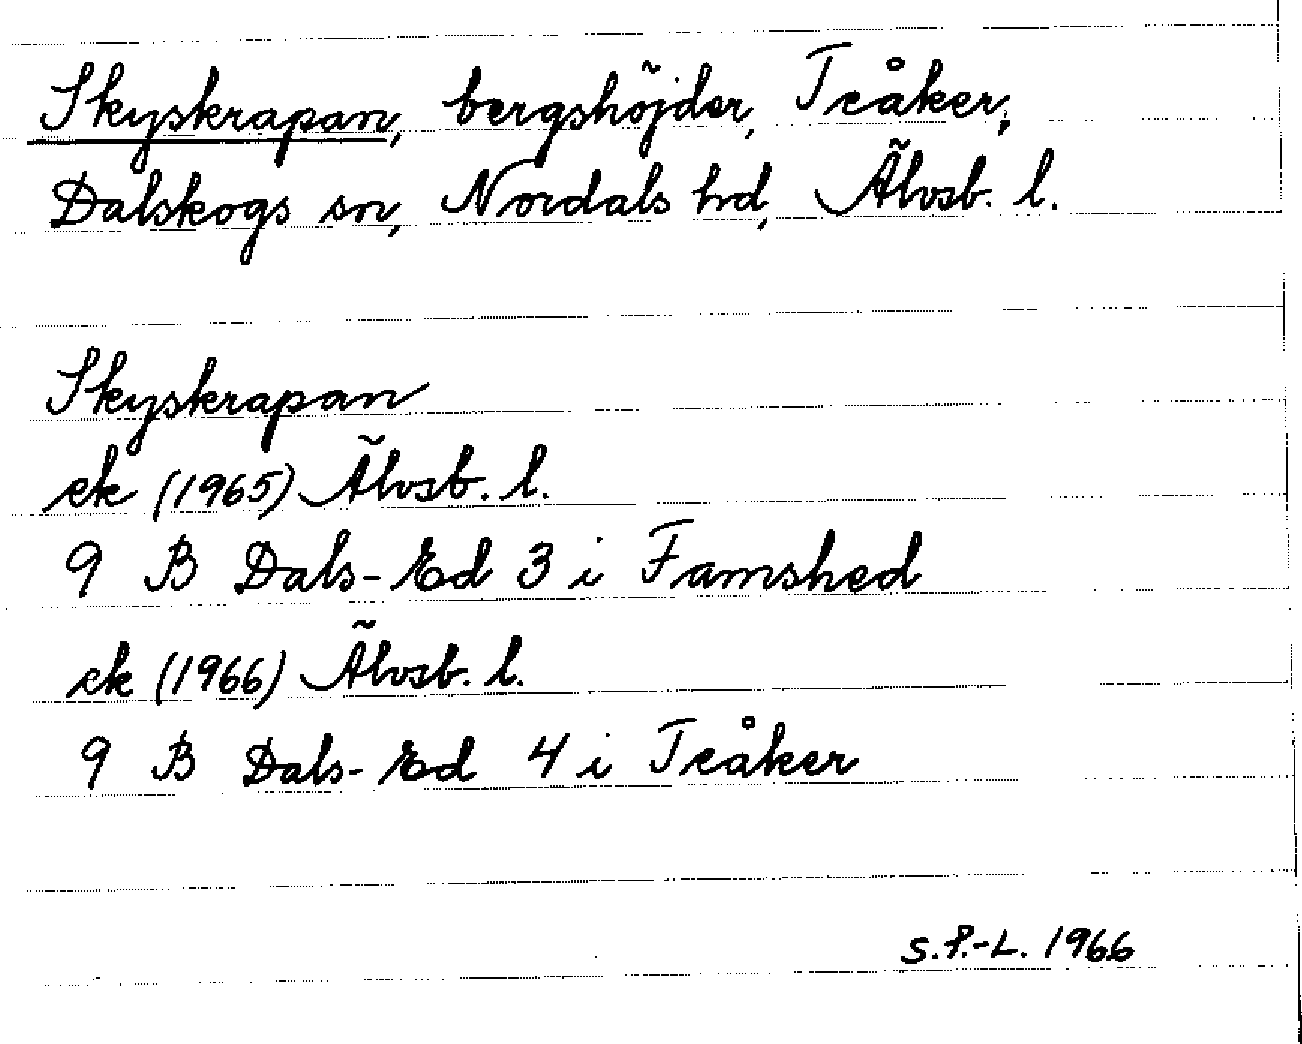 Skyskrapan, bergshöjder, Teåker,
Dalskogs sn, Nordals hd, Älvsb. l.
Skyskrapan
ek (1965) Älvsb. l.
9 B Dals-Ed 3 i Famshed
ek (1966) Älvsb. l.
9 B Dals-Ed 4 i Teåker
S.P.-L. 1966